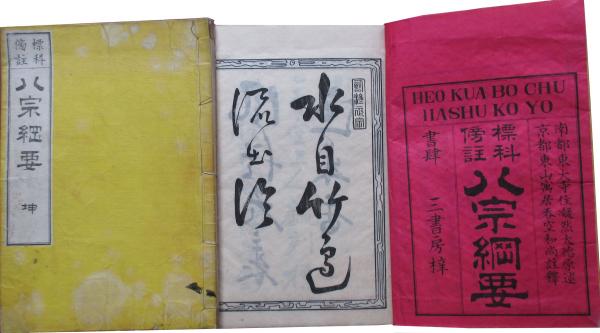 標科
傍註
八宗綱要 坤
水自竹邊
流出冷
HEO KUA BO CHU
HASHU KO YO
南都東大寺住凝然大德原述
京都東山寓居 空和尚註釋
標科
傍註
八宗綱要
書肆 三書房梓